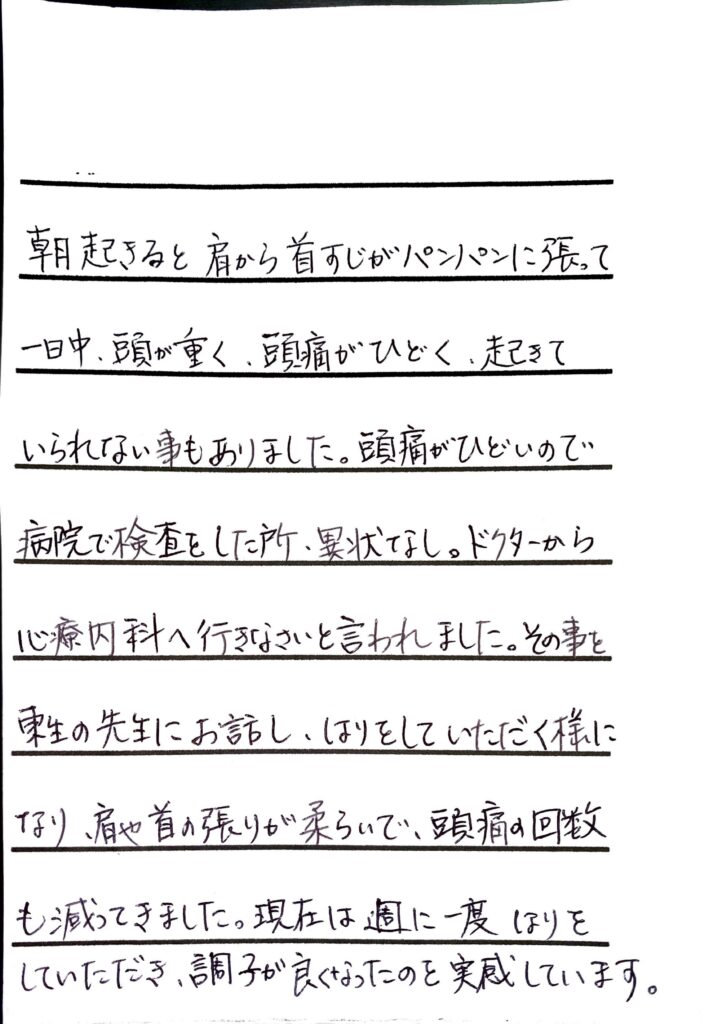 朝起きると肩から首すじがパンパンに張って
一日中、頭が重く、頭痛がひどく、起きて
いられない事もありました。頭痛がひどいので
病院で検査をした所、異状なし。ドクターから
心療内科へ行きなさいと言われました。その事を
東生の先生にお話し、はりをしていただく様に
なり、肩や首の張りが柔らいで、頭痛の回数
も減ってきました。現在は週に一度はりを
していただき、調子が良くなったのを実感しています。